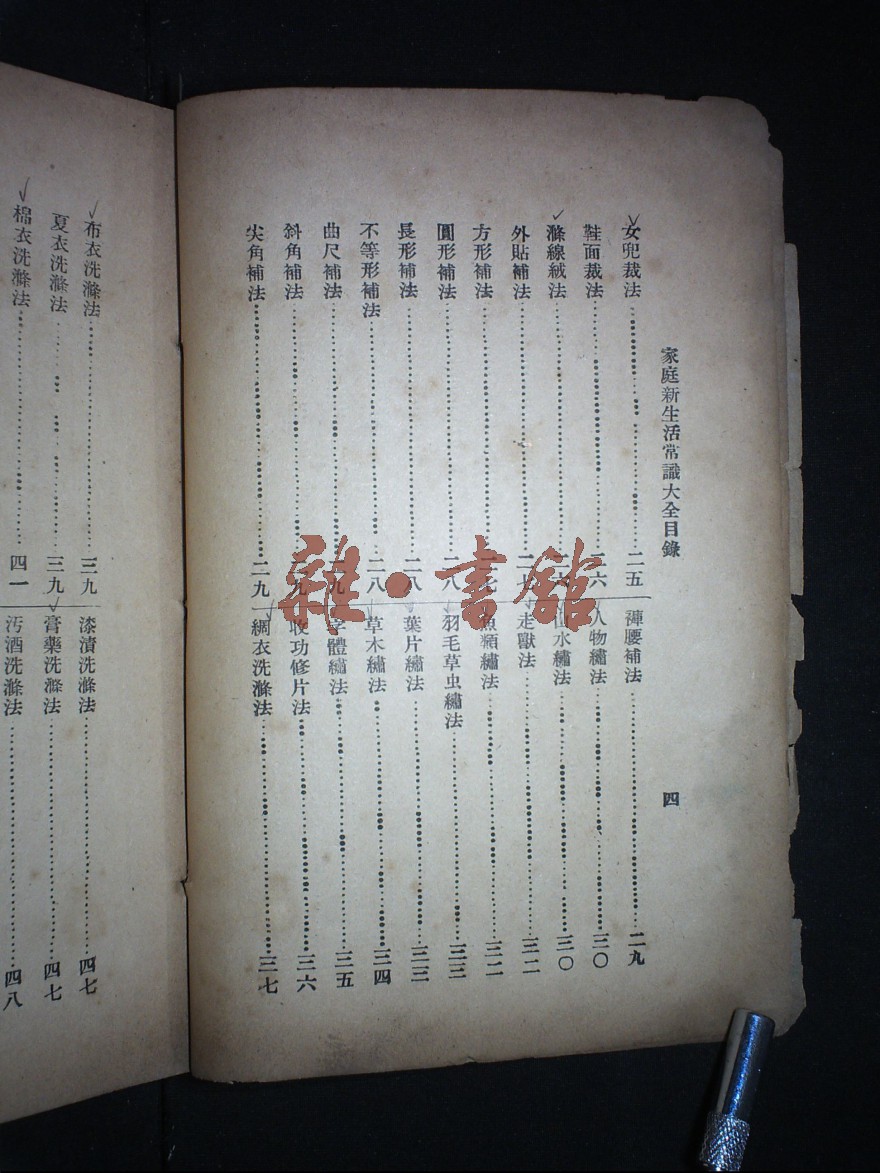 家庭新生活常識大全目錄
四
女兜裁法……二五
鞋面裁法……二六
滌線絨法……二六
外貼補法……二七
方形補法……二七
圓形補法……二八
長形補法……二八
不等形補法……二八
曲尺補法……九
斜角補法……九
尖角補法……二九
褲腰補法……二九
人物繡法……三〇
山水繡法……三〇
走獸法……三二
魚類繡法……三二
羽毛草虫繡法……三三
葉片繡法……三三
草木繡法……三四
字體繡法……三五
收功修片法……三六
綢衣洗滌法……三七
布衣洗滌法……三九
夏衣洗滌法……三九
棉衣洗滌法……四一
漆漬洗滌法……四七
膏藥洗滌法……四七
汚酒洗滌法……四八
雜·書館